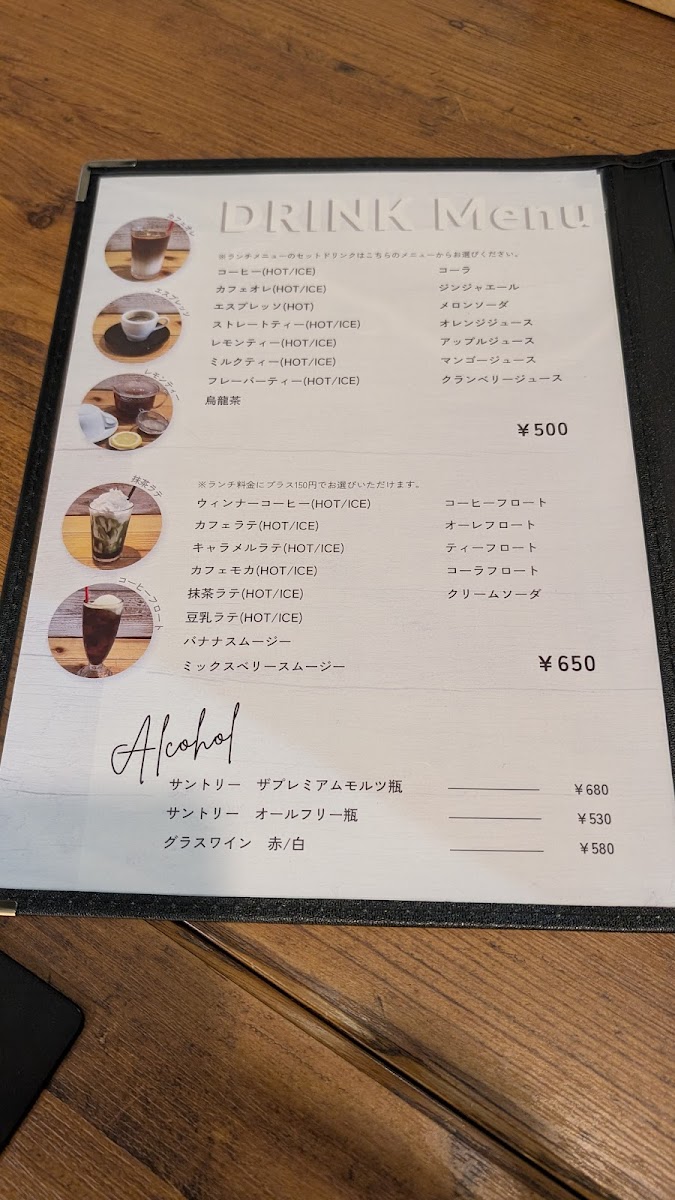 DRINK Menu
※ランチメニューのセットドリンクはこちらのメニューからお選びください。
カフェオレ
エスプレッソ
レモンティー
コーヒー(HOT/ICE)
カフェオレ(HOT/ICE)
エスプレッソ(HOT)
ストレートティー(HOT/ICE)
レモンティー(HOT/ICE)
ミルクティー(HOT/ICE)
フレーバーティー(HOT/ICE)
烏龍茶
コーラ
ジンジャエール
メロンソーダ
オレンジジュース
アップルジュース
マンゴージュース
クランベリージュース
￥500
※ランチ料金にプラス150円でお選びいただけます。
抹茶ラテ
コーヒーフロート
ウィンナーコーヒー(HOT/ICE)
カフェラテ(HOT/ICE)
キャラメルラテ(HOT/ICE)
カフェモカ(HOT/ICE)
抹茶ラテ(HOT/ICE)
豆乳ラテ(HOT/ICE)
バナナスムージー
ミックスベリースムージー
コーヒーフロート
オーレフロート
ティーフロート
コーラフロート
クリームソーダ
￥650
Alcohol
サントリー　ザプレミアムモルツ瓶 ￥680
サントリー　オールフリー瓶 ￥530
グラスワイン　赤/白 ￥580